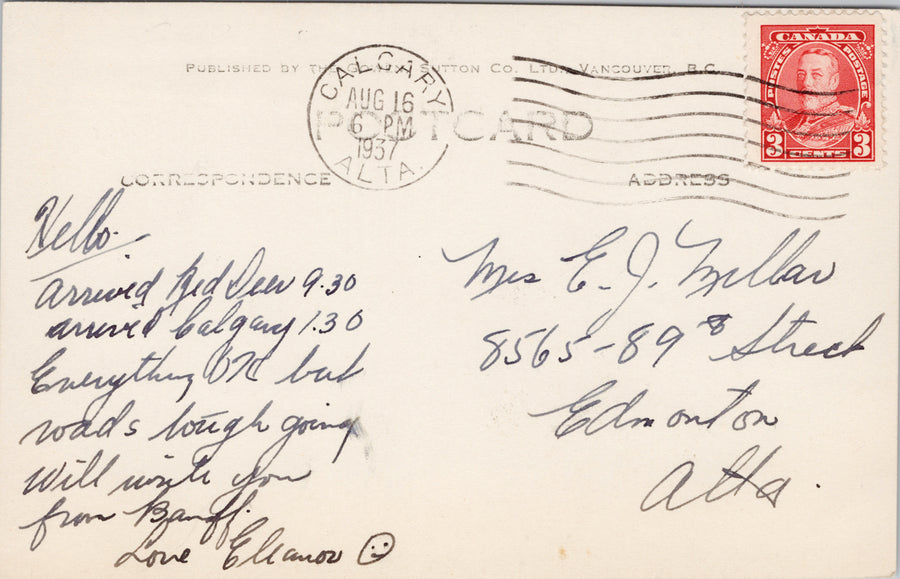 PUBLISHED BY THE GOWEN SUTTON CO. LTD. VANCOUVER, B.C.
CALGARY
AUG 16
6 PM
1937
ALTA.
CANADA
POSTES POSTAGE
3 CENTS 3
POST CARD
CORRESPONDENCE
ADDRESS
Hello.
Arrived Red Deer 9.30
arrived Calgary 1.30
Everything OK but
roads tough going
Will write you
from Banff.
Love Eleanor
Mrs E. J. Millar
8565-89 Street
Edmonton
Alta.